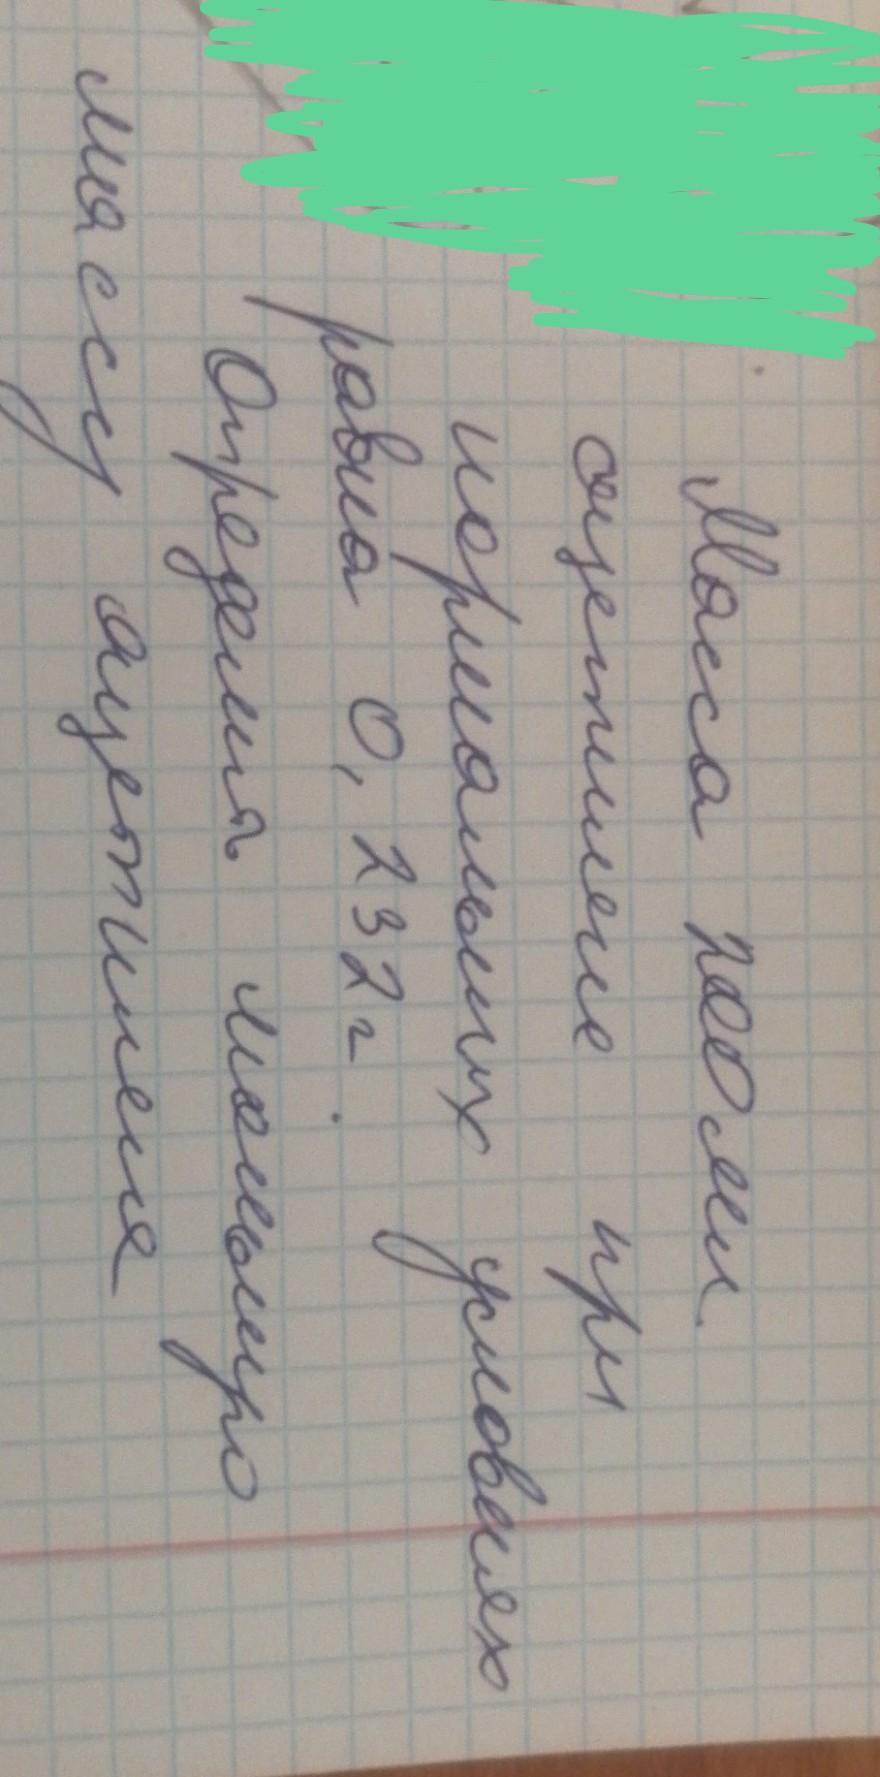 Масса 200 мл
ацетилена при
нормальных условиях
равна 0,232г.
Определить молярную
массу ацетилена